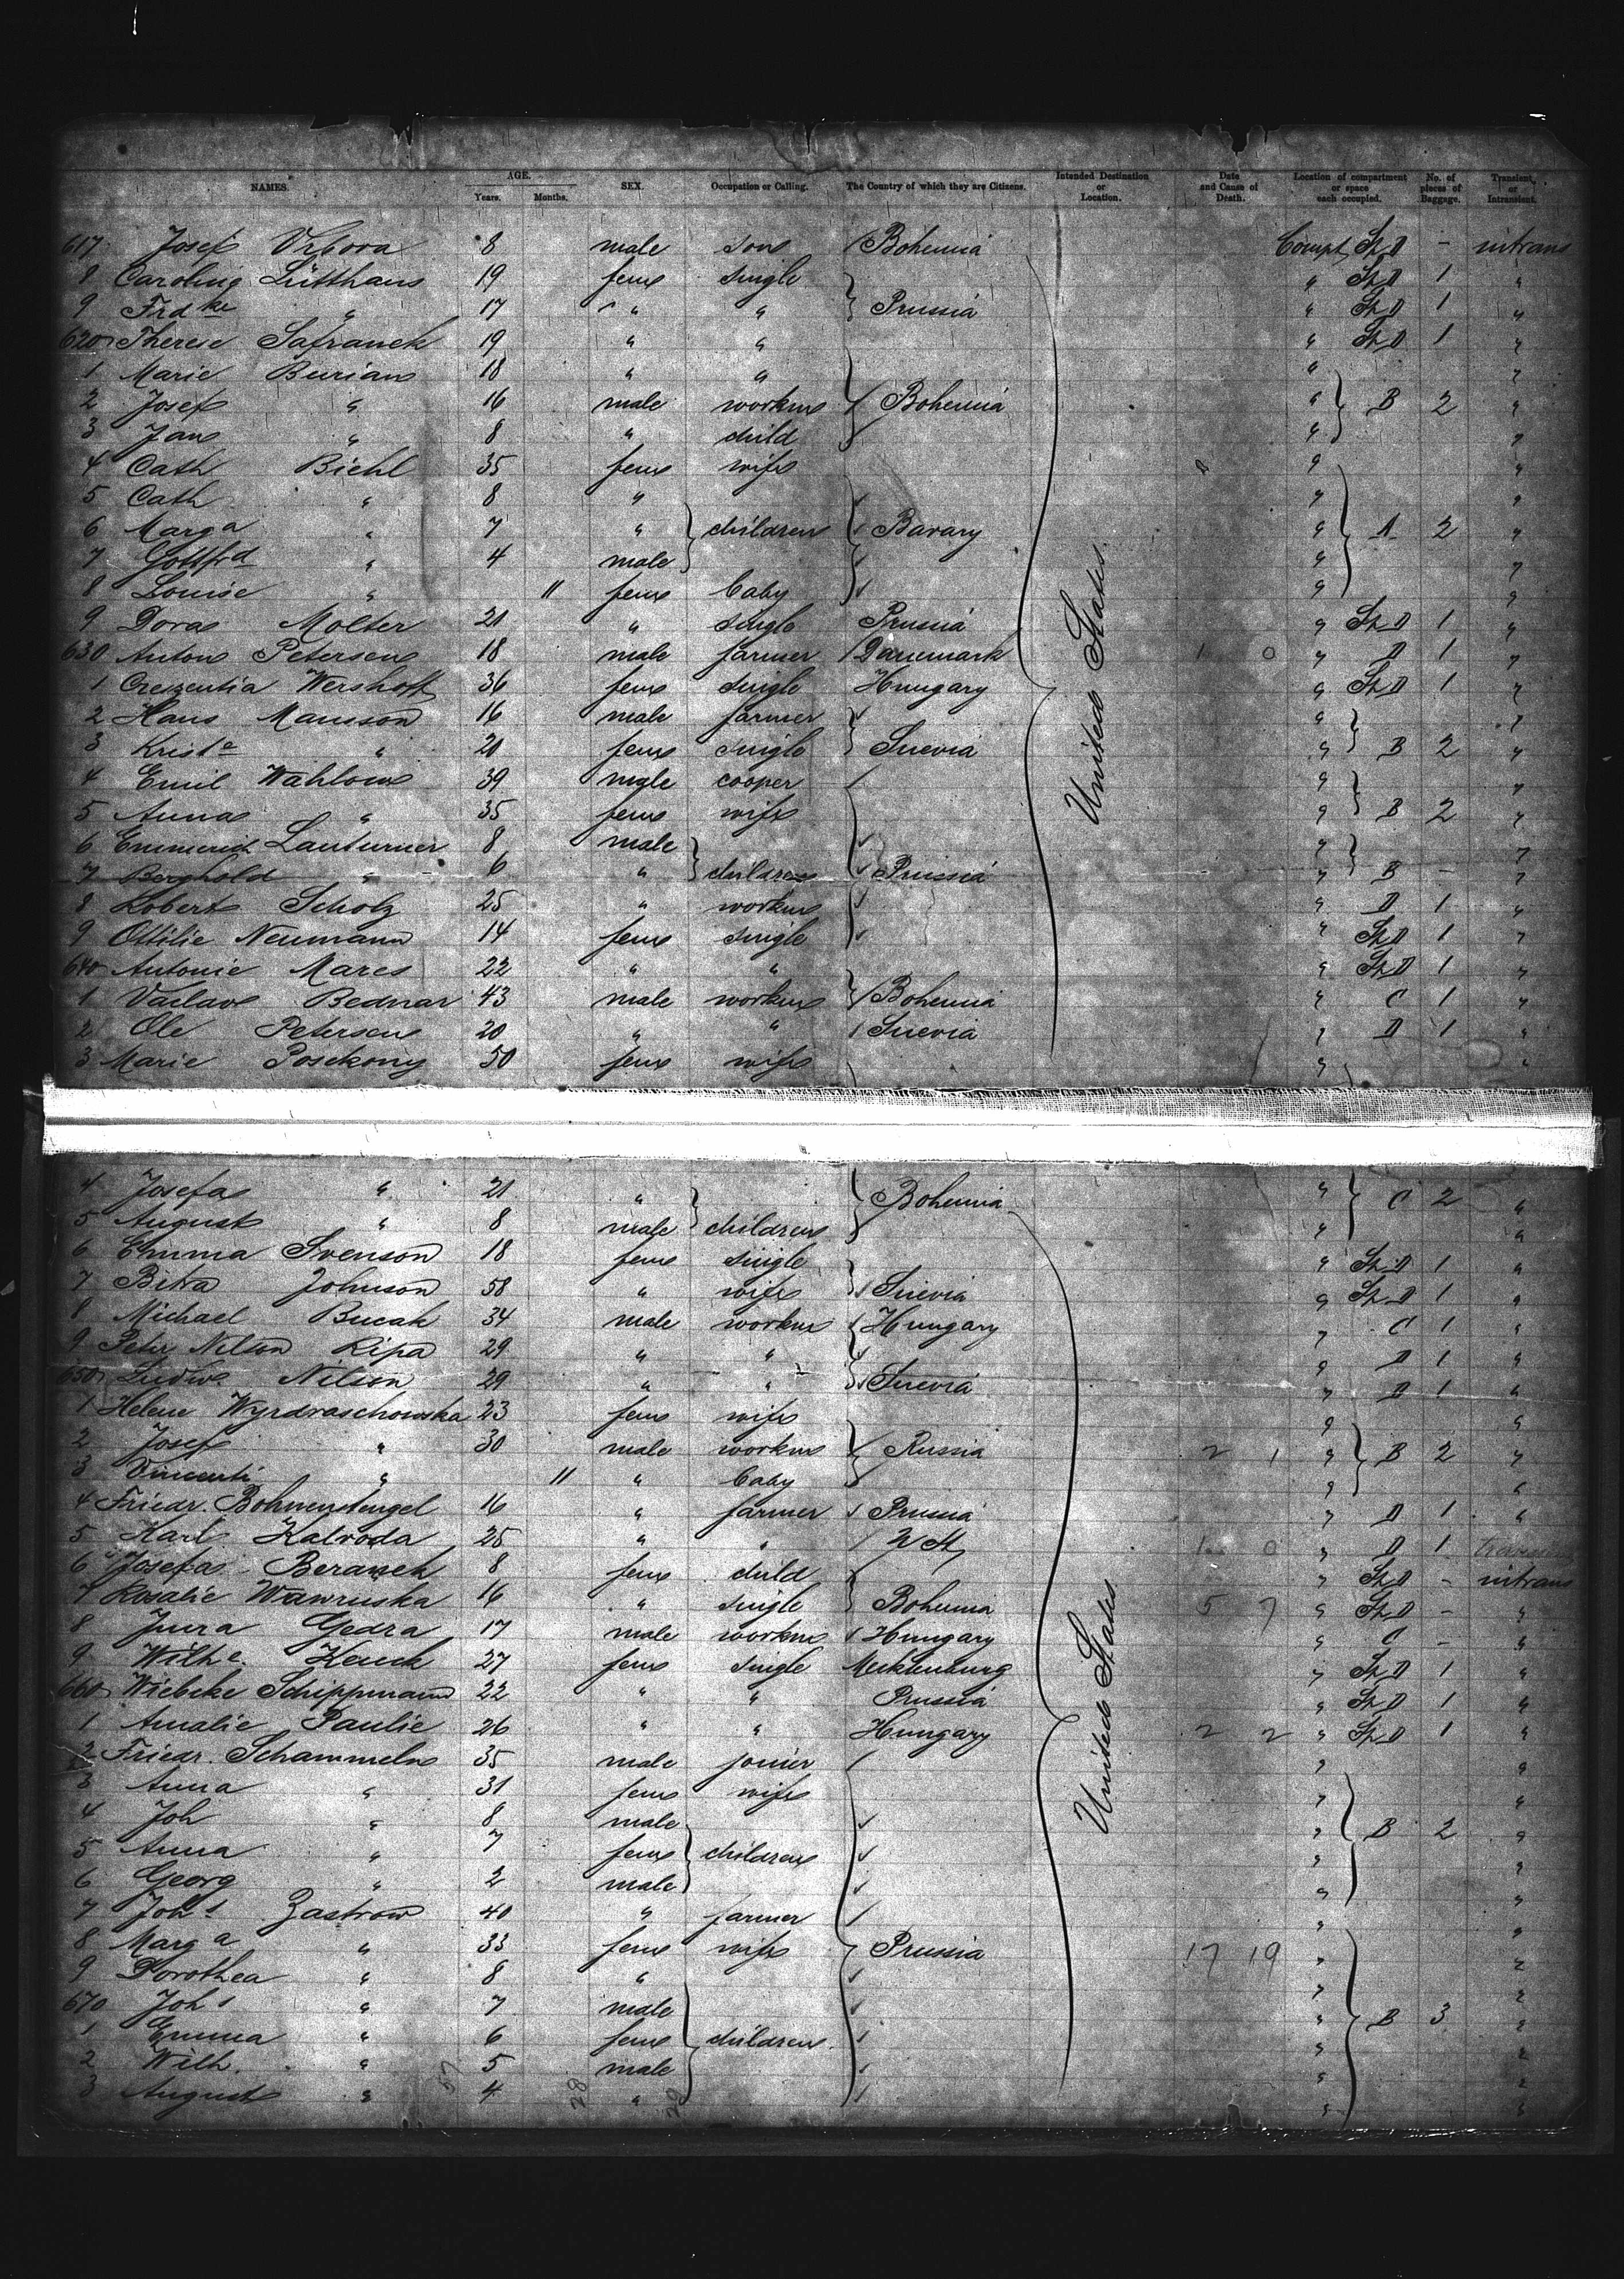 NAMES. AGE. Years. Months. SEX. Occupation or Calling. The Country of which they are Citizens. Intended Destination or Location. Date and Cause of Death. Location of compartment or space each occupied. No. of pieces of Baggage. Transient or Intransient.
617 Josef Vrbova 8 male son Bohemia Compt St D - intrans
8 Caroline Lütthans 19 fem single " St D 1 "
9 Frdke " 17 " " Prussia " St D 1 "
620 Therese Safranek 19 " " " St D 1 "
1 Marie Burian 18 " " " "
2 Josef " 16 male workm Bohemia " B 2 "
3 Jan " 8 " child " "
4 Cath Biehl 35 fem wife " "
5 Cath " 8 " " "
6 Marga " 7 " children Bavary " A 2 "
7 Gottfrd " 4 male " "
8 Louise " 11 fem baby " "
9 Dora Molter 21 " single Prussia " St D 1 "
630 Anton Petersen 18 male farmer Danemark 1 0 " D 1 "
1 Creszentia Wershoft 36 fem single Hungary " St D 1 "
2 Hans Mansson 16 male farmer " "
3 Krist a " 20 fem single Suevia " B 2 "
4 Emil Wahlow 39 male cooper " "
5 Anna " 35 fem wife " B 2 "
6 Emmerich Lauturner 8 male " "
7 Berghold " 6 " children Prussia " B - "
8 Robert Scholz 25 " workm " D 1 "
9 Ottilie Neumann 14 fem single " St D 1 "
640 Antonie Mares 22 " " " St D 1 "
1 Vaclav Bednar 43 male workm Bohemia " C 1 "
2 Ole Petersen 20 " " Suevia " D 1 "
3 Marie Posekony 50 fem wife " "
United States
4 Josefa " 21 " Bohemia " C 2 "
5 August " 8 male children " "
6 Emma Svenson 18 fem single " St D 1 "
7 Bitra Johnson 58 " wife Suevia " St D 1 "
8 Michael Bucak 34 male workm Hungary " C 1 "
9 Peter Nilson Ripa 29 " " " D 1 "
650 Ludw. Nilson 29 " " Suevia " D 1 "
1 Helene Wyrdraschowska 23 fem wife " "
2 Josef " 30 male workm Russia 2 1 " B 2 "
3 Vincenti " 11 " baby " "
4 Friedr. Bohnenstengel 16 " farmer Prussia " D 1 "
5 Karl Kalvoda 25 " " 1 0 " D 1
6 Josefa Beranek 8 fem child " St D - intrans
7 Rosalie Wawruska 16 " single Bohemia 5 7 " St D - "
8 Jura Gedra 17 male workm Hungary " C - "
9 Wilhe. Kenck 27 fem single Mecklenburg " St D 1 "
660 Wiebeke Schippmann 22 " " Prussia " St D 1 "
1 Amalie Paulie 26 " " Hungary 2 2 " St D 1 "
2 Friedr. Schammeln 35 male joiner " "
3 Anna " 31 fem wife " "
4 Joh " 8 male " B 2 "
5 Anna " 7 fem children " "
6 Georg " 2 male " "
7 Johs Zastrow 40 " farmer " "
8 Marga " 33 fem wife Prussia 17 19 " "
9 Dorothea " 8 " " "
670 Johs " 7 male " B 3 "
1 Emma " 6 fem children " "
2 Wilh. " 5 male " "
3 August " 4 " " "
United States